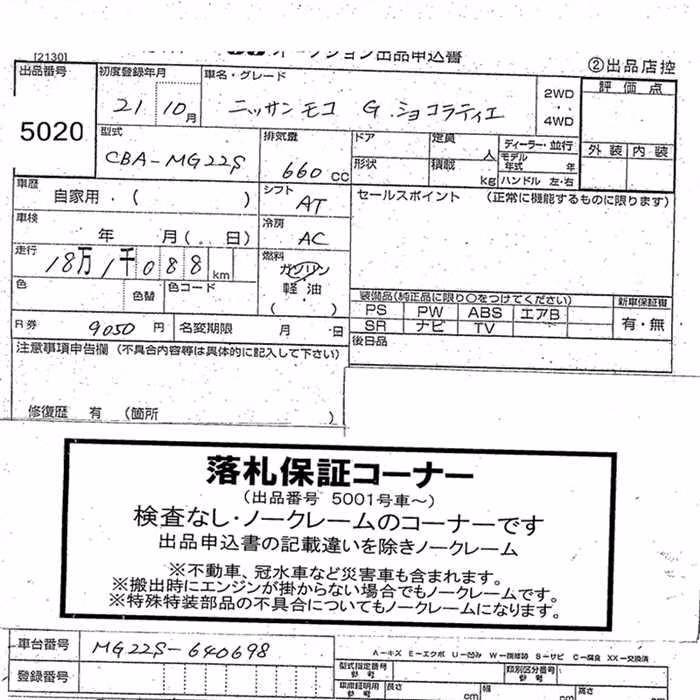 [2130]
オークション出品申込書
②出品店控
出品番号 5020
初度登録年月 21 10月
車名・グレード ニッサンモコ G ショコラティエ
2WD
4WD
評価点
外装 内装
型式 CBA-MG22S
排気量 660 CC
ドア
形状
定員 人
積載 kg
ディーラー・並行
モデル年式 年
ハンドル 左・右
車歴 自家用・( )
シフト AT
セールスポイント (正常に機能するものに限ります)
車検 年 月(.日)
冷房 AC
走行 18万1千088km
燃料 ガソリン
軽油
( )
色
色替
色コード
装備品(純正品に限り○をつけてください)
PS PW ABS エアB
SR ナビ TV
新車保証書
有・無
R券 9050円
名変期限 月 日
後日品
注意事項申告欄 (不具合内容等は具体的に記入して下さい)
修復歴 有 (箇所 )
落札保証コーナー
(出品番号 5001号車~)
検査なし・ノークレームのコーナーです
出品申込書の記載違いを除きノークレーム
※不動車、冠水車など災害車も含まれます。
※搬出時にエンジンが掛からない場合でもノークレームです。
※特殊特装部品の不具合についてもノークレームになります。
車台番号 MG22S-640698
A-キズ E-エクボ U-凹み W-補修跡 S-サビ C-腐食 XX-交換済
登録番号
型式指定番号 参考
類別区分番号 参考
車庫証明用 参考
長さ cm
幅 cm
高さ cm